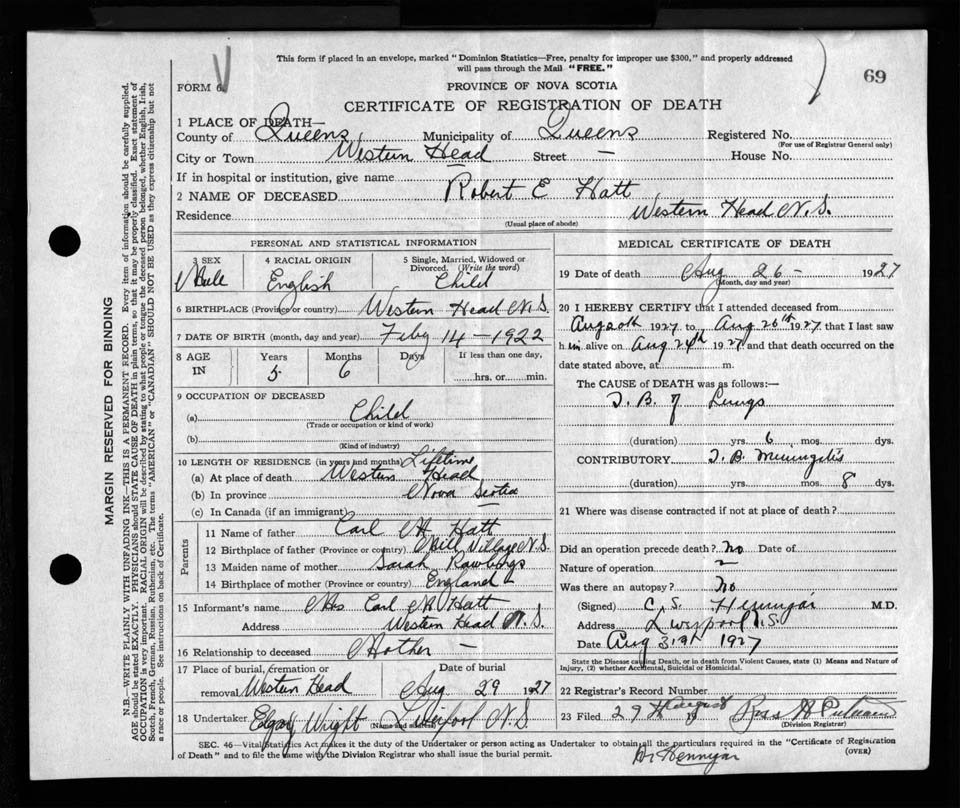 This form if placed in an envelope, marked "Dominion Statistics—Free, penalty for improper use $300," and properly addressed
will pass through the Mail "FREE."
69
FORM 6
PROVINCE OF NOVA SCOTIA
CERTIFICATE OF REGISTRATION OF DEATH
1 PLACE OF DEATH—
County of Queens Municipality of Queens Registered No.
(For use of Registrar General only)
City or Town Western Head Street — House No.
If in hospital or institution, give name
2 NAME OF DECEASED Robert E Hatt
Residence Western Head N.S.
(Usual place of abode)
PERSONAL AND STATISTICAL INFORMATION
3 SEX 4 RACIAL ORIGIN 5 Single, Married, Widowed or
Divorced. (Write the word)
Male English Child
6 BIRTHPLACE (Province or country) Western Head N.S.
7 DATE OF BIRTH (month, day and year) Feby 14 - 1922
8 AGE IN Years Months Days If less than one day,
5 6 hrs. or min.
9 OCCUPATION OF DECEASED
(a) Child
(Trade or occupation or kind of work)
(b)
(Kind of industry)
10 LENGTH OF RESIDENCE (in years and months) Lifetime
(a) At place of death Western Head
(b) In province Nova Scotia
(c) In Canada (if an immigrant)
Parents
11 Name of father Carl H Hatt
12 Birthplace of father (Province or country) Mill Village N.S.
13 Maiden name of mother Sarah Rawlings
14 Birthplace of mother (Province or country) England
15 Informant's name Mrs Carl Hatt
Address Western Head N.S.
16 Relationship to deceased Mother —
17 Place of burial, cremation or Date of burial
removal Western Head Aug 29 1927
18 Undertaker Edgar Wright (Name and address) Liverpool N.S
MEDICAL CERTIFICATE OF DEATH
19 Date of death Aug 26 - 1927
(Month, day and year)
20 I HEREBY CERTIFY that I attended deceased from
Aug 20th 1927 to Aug 26th 1927 that I last saw
him alive on Aug 24th 1927 and that death occurred on the
date stated above, at m.
The CAUSE of DEATH was as follows:—
T. B. of Lungs
(duration) yrs. 6 mos. dys.
CONTRIBUTORY T. B. Meningitis
(duration) yrs. mos. 8 dys.
21 Where was disease contracted if not at place of death?
Did an operation precede death? No Date of
Nature of operation
Was there an autopsy? No
(Signed) C. S. Hennigar M.D.
Address Liverpool N.S.
Date Aug 31st 1927
State the Disease causing Death, or in death from Violent Causes, state (1) Means and Nature of
Injury, (2) whether Accidental, Suicidal or Homicidal.
22 Registrar's Record Number
23 Filed 29th August 19
(Division Registrar)
SEC. 46—Vital Statistics Act makes it the duty of the Undertaker or person acting as Undertaker to obtain all the particulars required in the "Certificate of Registration
of Death" and to file the same with the Division Registrar who shall issue the burial permit.
(OVER)
Dr Hennigar
MARGIN RESERVED FOR BINDING
N.B.—WRITE PLAINLY WITH UNFADING INK—THIS IS A PERMANENT RECORD. Every item of information should be carefully supplied.
AGE should be stated EXACTLY. PHYSICIANS should STATE CAUSE OF DEATH in plain terms, so that it may be properly classified. Exact statement of
OCCUPATION is very important. RACIAL ORIGIN will be described by stating to what people or tongue the deceased person belonged, whether English, Irish,
Scotch, French, German, Russian, Ruthenian, etc. The terms "AMERICAN" or "CANADIAN" SHOULD NOT BE USED as they express citizenship but not
a race or people. See instructions on back of Certificate.